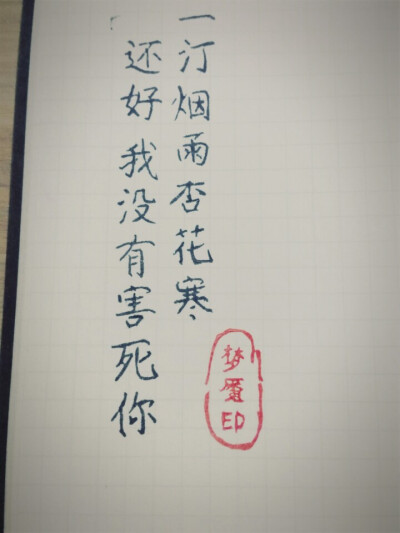 一汀烟雨杏花寒
还好我没有害死你
梦魇印